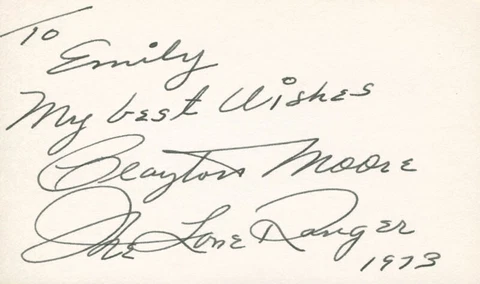 To
Emily
My best Wishes
Clayton Moore
The Lone Ranger
1973